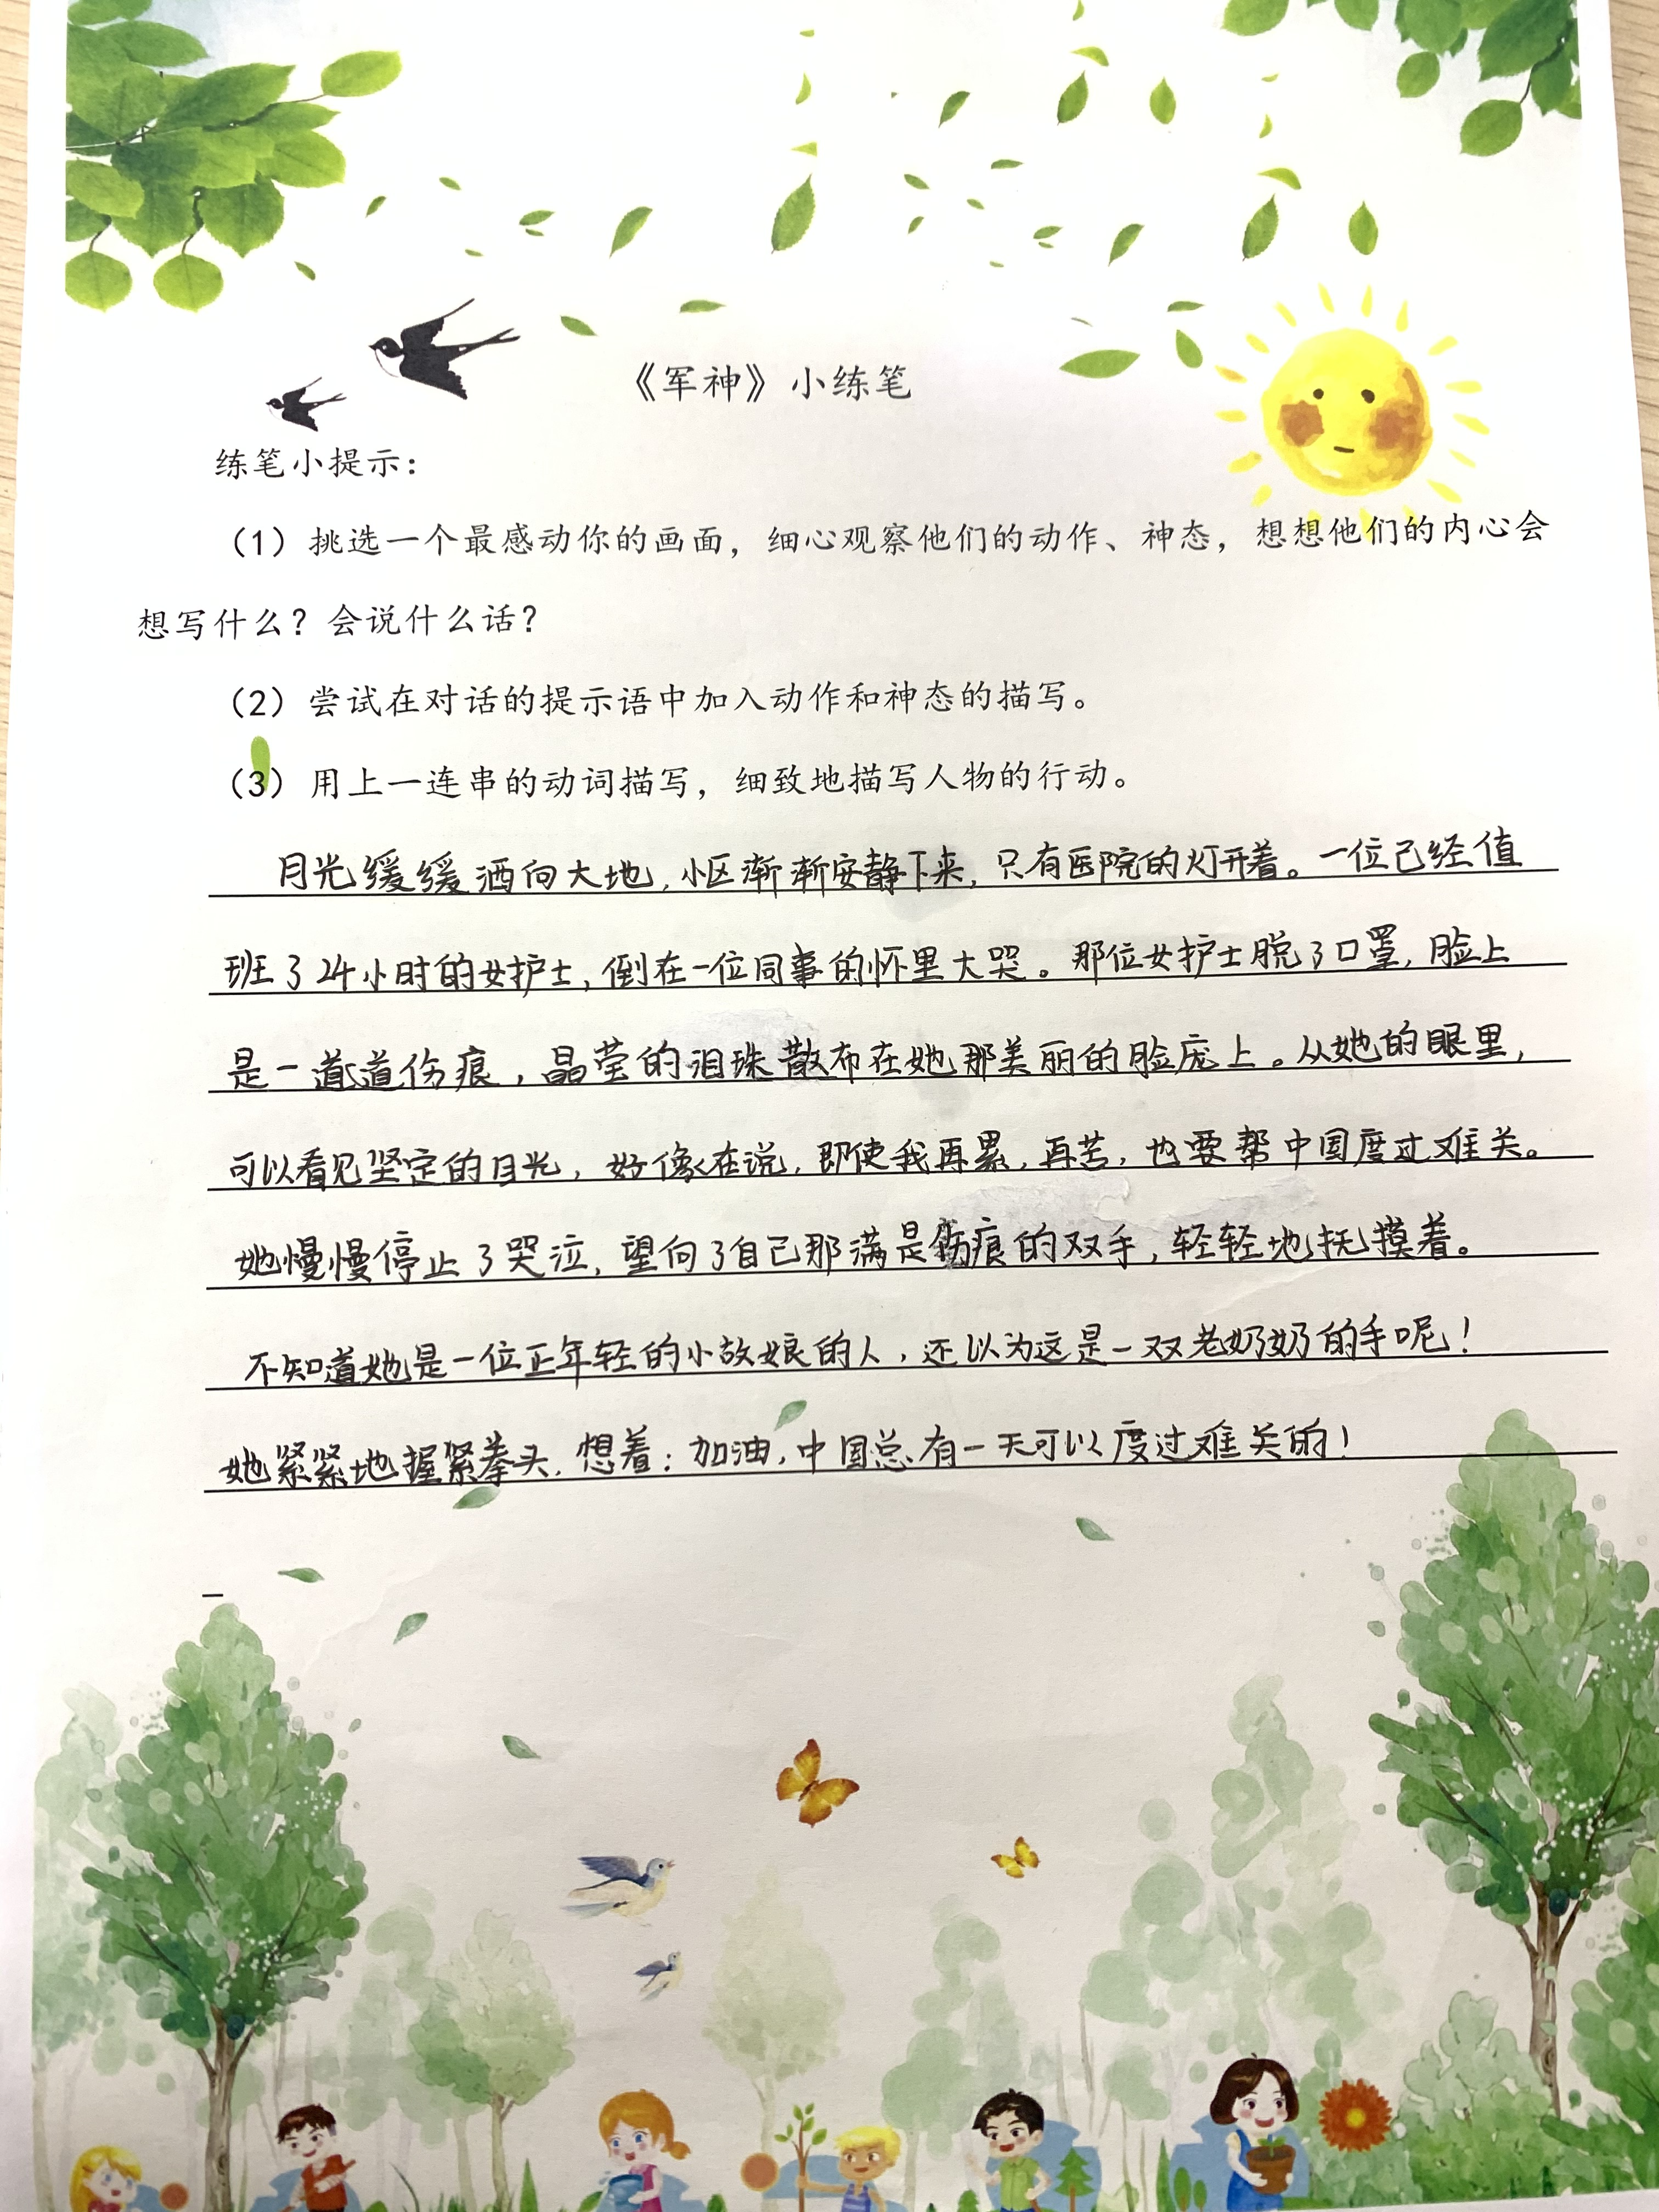 《军神》小练笔
练笔小提示：
（1）挑选一个最感动你的画面，细心观察他们的动作、神态，想想他们的内心会
想写什么？会说什么话？
（2）尝试在对话的提示语中加入动作和神态的描写。
（3）用上一连串的动词描写，细致地描写人物的行动。
月光缓缓洒向大地，小区渐渐安静下来，只有医院的灯开着。一位已经值
班了24小时的女护士，倒在一位同事的怀里大哭。那位女护士脱了口罩，脸上
是一道道伤痕，晶莹的泪珠散布在她那美丽的脸庞上。从她的眼里，
可以看见坚定的目光，好像在说，即使我再累，再苦，也要帮中国度过难关。
她慢慢停止了哭泣，望向了自己那满是伤痕的双手，轻轻地抚摸着。
不知道她是一位正年轻的小故娘的人，还以为这是一双老奶奶的手呢！
她紧紧地握紧拳头，想着：加油，中国总有一天可以度过难关的！